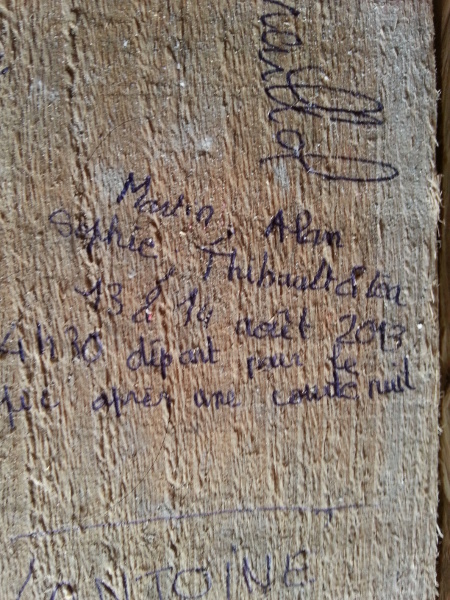 Martin, Alan
Sophie, Thibault & Léa
13 & 14 août 2013
4h30 départ pour le
pic après une courte nuit
ANTOINE